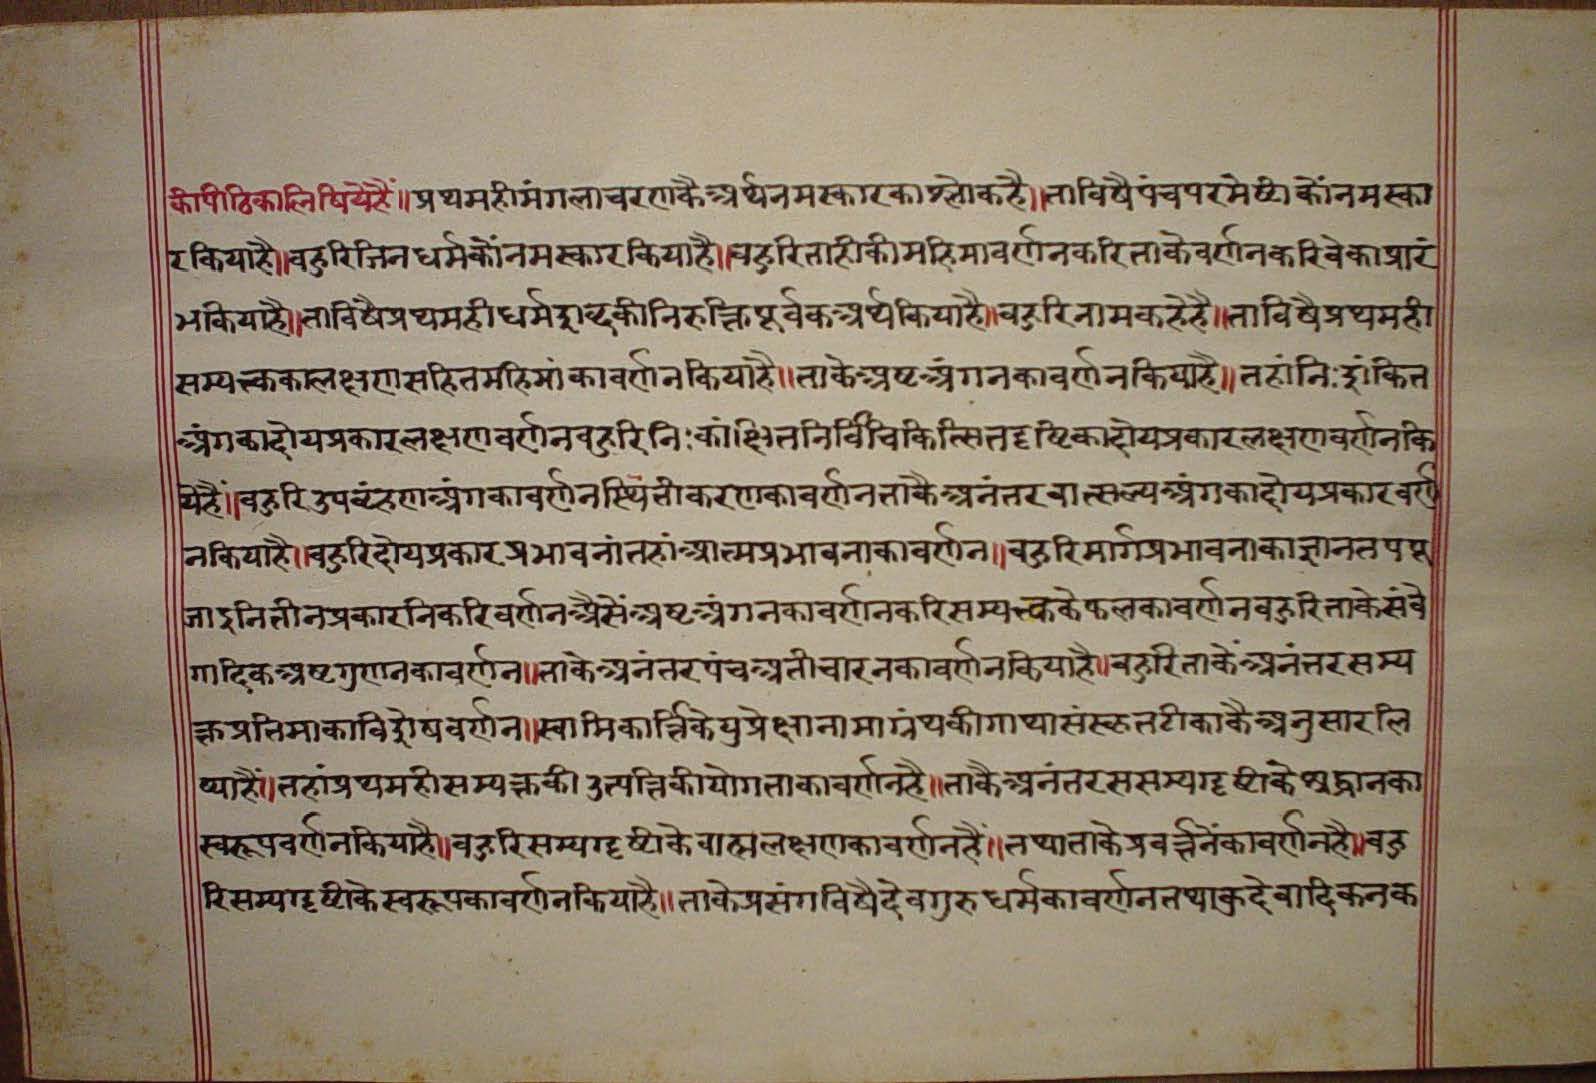 कीपीठिकालिषियेहैं॥प्रथमहीमंगलाचरणकैअर्थनमस्कारकाश्लोकहै॥ताविषैपंचपरमेष्टीकोंनमस्का
रकियाहै॥बहुरिजिनधर्मकोंनमस्कारकियाहै॥बहुरिताहीकीमहिमावर्णनकरिताकेवर्णनकरिवेकाप्रारं
भकियाहै॥ताविषैप्रथमहीधर्मशब्दकीनिरुक्तिपूर्वकअर्थकियाहै॥बहुरिनामकहेहै॥ताविषैप्रथमही
सम्यक्तकालक्षणसहितमहिमांकावर्णनकियाहै॥ताकेअष्टअंगनकावर्णनकियाहै॥तहांनिःशंकित
अंगकादोयप्रकारलक्षणवर्णनबहुरिनिःकांक्षितनिर्विचिकित्सितदृष्टिकादोयप्रकारलक्षणवर्णनकि
येहैं॥बहुरिउपबृंहणअंगकावर्णनस्थितीकरणकावर्णनताकैअनंतरवात्सल्यअंगकादोयप्रकारवर्ण
नकियाहै॥बहुरिदोयप्रकारप्रभावनांतहांआत्मप्रभावनाकावर्णन॥बहुरिमार्गप्रभावनाकाज्ञानतपपू
जाइनितीनप्रकारनिकरिवर्णनअैसेंअष्टअंगनकावर्णनकरिसम्यक्तकेफलकावर्णनबहुरिताकेसंवे
गादिकअष्टगुणनकावर्णन॥ताकेअनंतरपंचअतीचारनकावर्णनकियाहै॥बहुरिताकेंअनंतरसम्य
क्तप्रतिमाकाविशेषवर्णन॥स्वामिकार्त्तिकेयुप्रेक्षानामाग्रंथकीगाथासंस्कृतटीकाकैअनुसारलि
ष्याहैं॥तहांप्रथमहीसम्यक्तकीउत्पत्तिकीयोगताकावर्णनहै॥ताकैअनंतरससम्यग्दृष्टीकेश्रद्धानका
स्वरूपवर्णनकियाहै॥बहुरिसम्यग्दृष्टीकेवात्मलक्षणकावर्णनहैं॥तथाताकेप्रवर्त्तनेंकावर्णनहै॥बहु
रिसम्यग्दृष्टीकेस्वरूपकावर्णनकियाहै॥ताकेप्रसंगविषैदेवगुरुधर्मकावर्णनतथाकुदेवादिकनक